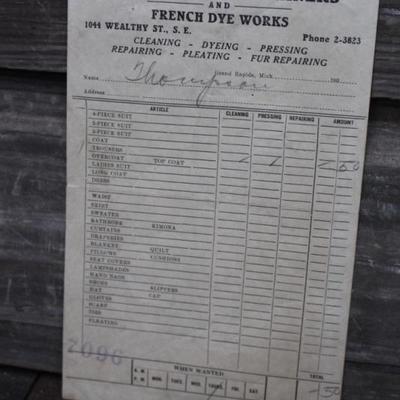 AND
FRENCH DYE WORKS
1044 WEALTHY ST., S. E. Phone 2-3823
CLEANING - DYEING - PRESSING
REPAIRING - PLEATING - FUR REPAIRING
Grand Rapids, Mich. 193
Name Thompson
Address
ARTICLE CLEANING PRESSING REPAIRING AMOUNT
4-PIECE SUIT
3-PIECE SUIT
2-PIECE SUIT
COAT
TROUSERS
OVERCOAT TOP COAT
LADIES SUIT 50
LONG COAT
DRESS
WAIST
SKIRT
SWEATER
BATHROBE KIMONA
CURTAINS
DRAPERIES
BLANKET QUILT
PILLOWS CUSHIONS
SEAT COVERS
LAMPSHADES
HAND BAGS
SHOES SLIPPERS
HAT CAP
GLOVES
SCARF
TIES
PLEATING
7096
WHEN WANTED TOTAL
A. M. MON. TUES. WED. THURS. FRI. SAT. 50
P. M.